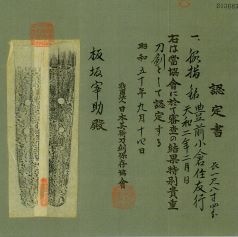 認定書
一、脇指 銘 豊前小倉住友行
天和二年二月日
長一尺八寸四分
右は當協會に於て審査の結果特別貴重
刀剣として認定する
昭和五十年九月十四日
財団法人日本美術刀剣保存協會
板坂宰助殿